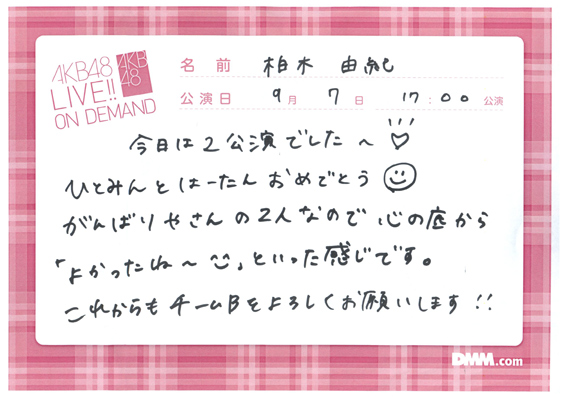 AKB48
LIVE!!
ON DEMAND
AKB
48
名前 柏木 由紀
公演日 9月 7日 17:00 公演
今日は2公演でした〜♡
ひとみんとはーたんおめでとう
がんばりやさんの2人なので心の底から
「よかったね〜」といった感じです。
これからもチームBをよろしくお願いします!!
DMM.com